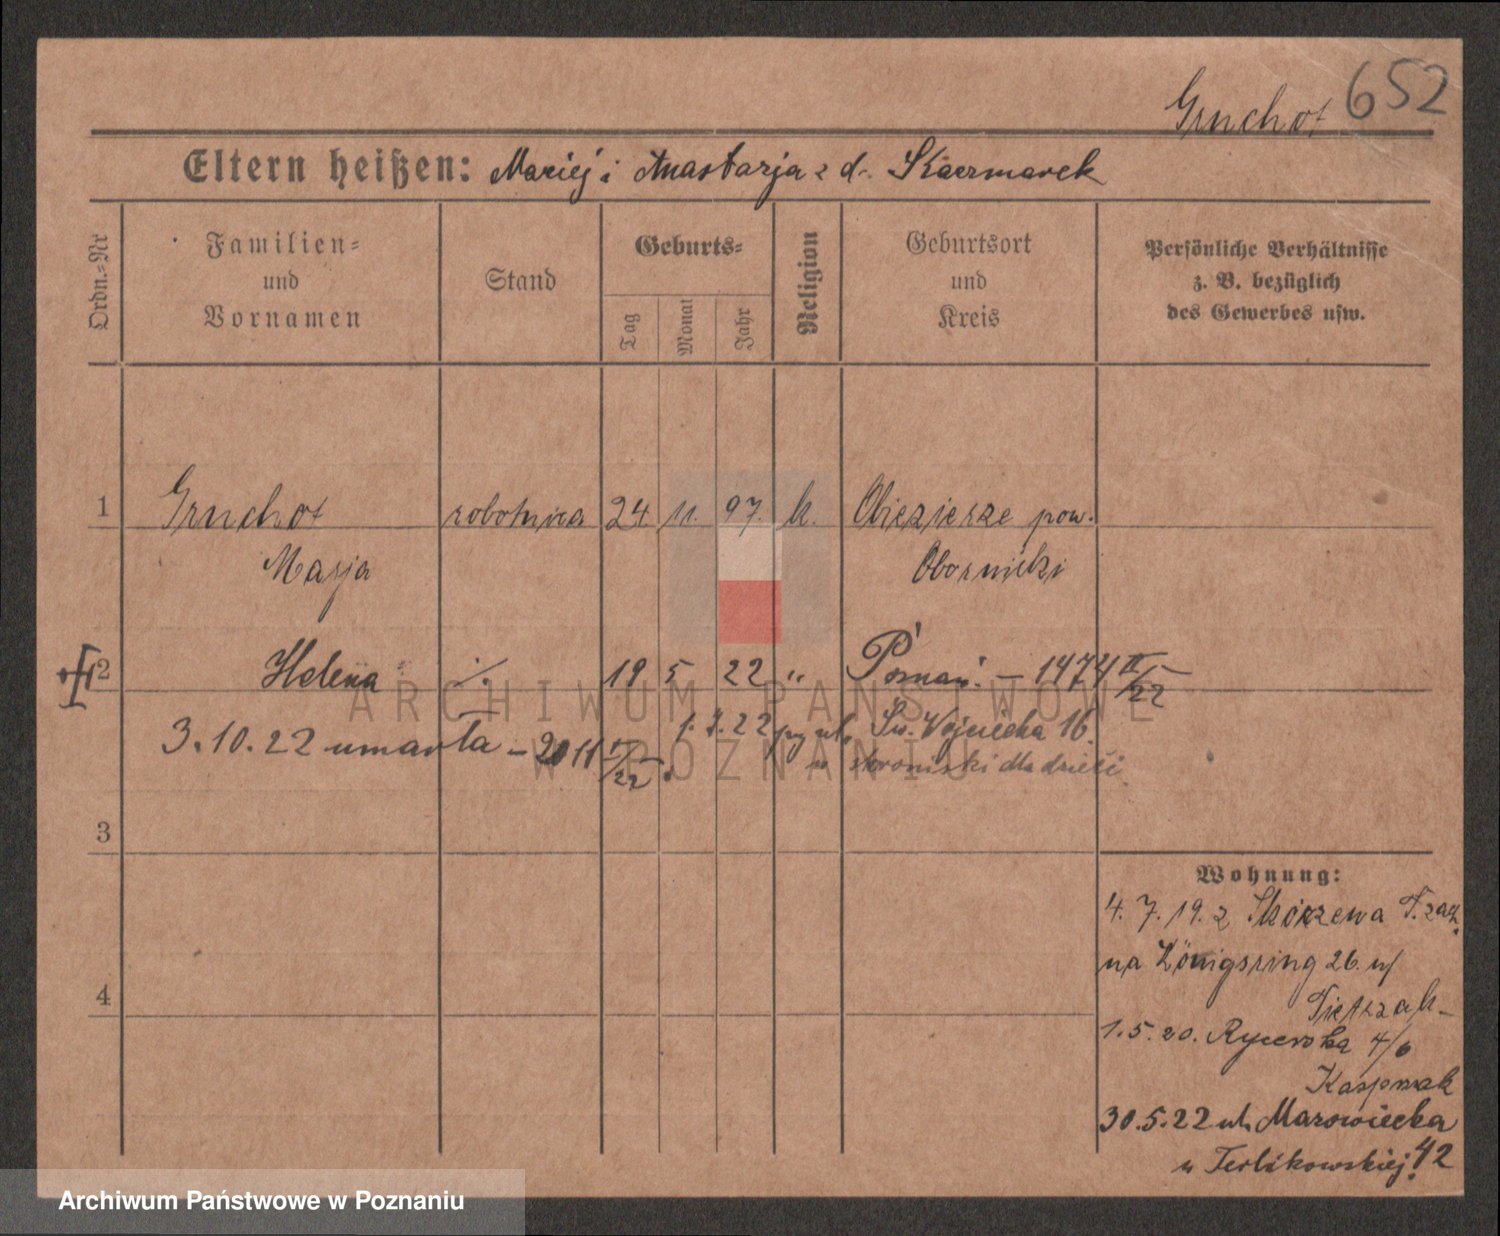 Gruchot 652
Eltern heißen: Maciej i Anastazja z d. Kaczmarek
Ordn.-Nr
Familien-
und
Vornamen
Stand
Geburts-
Tag
Monat
Jahr
Religion
Geburtsort
und
Kreis
Persönliche Verhältnisse
z. B. bezüglich
des Gewerbes usw.
1 Gruchot robotnica 24 11. 97. k. Obiezierze pow.
Marja Obornicki
2 Helena ./. 19 5 22 " Poznań. – 1474 II/22
1. 7. 22 przy ul. Św. Wojciecha 16.
3.10.22 umarła – 2011 II/22.
w schronisku dla dzieci
3
4
Wohnung:
4. 7. 19. z Skórzewa
na Königsring 26. u/
Pietrzak
1. 5. 20. Rycerska 4/6
Kasprzak
30.5.22 ul. Mazowiecka
u Terlikowskiej 42
ARCHIWUM PAŃSTWOWE
W POZNANIU
Archiwum Państwowe w Poznaniu